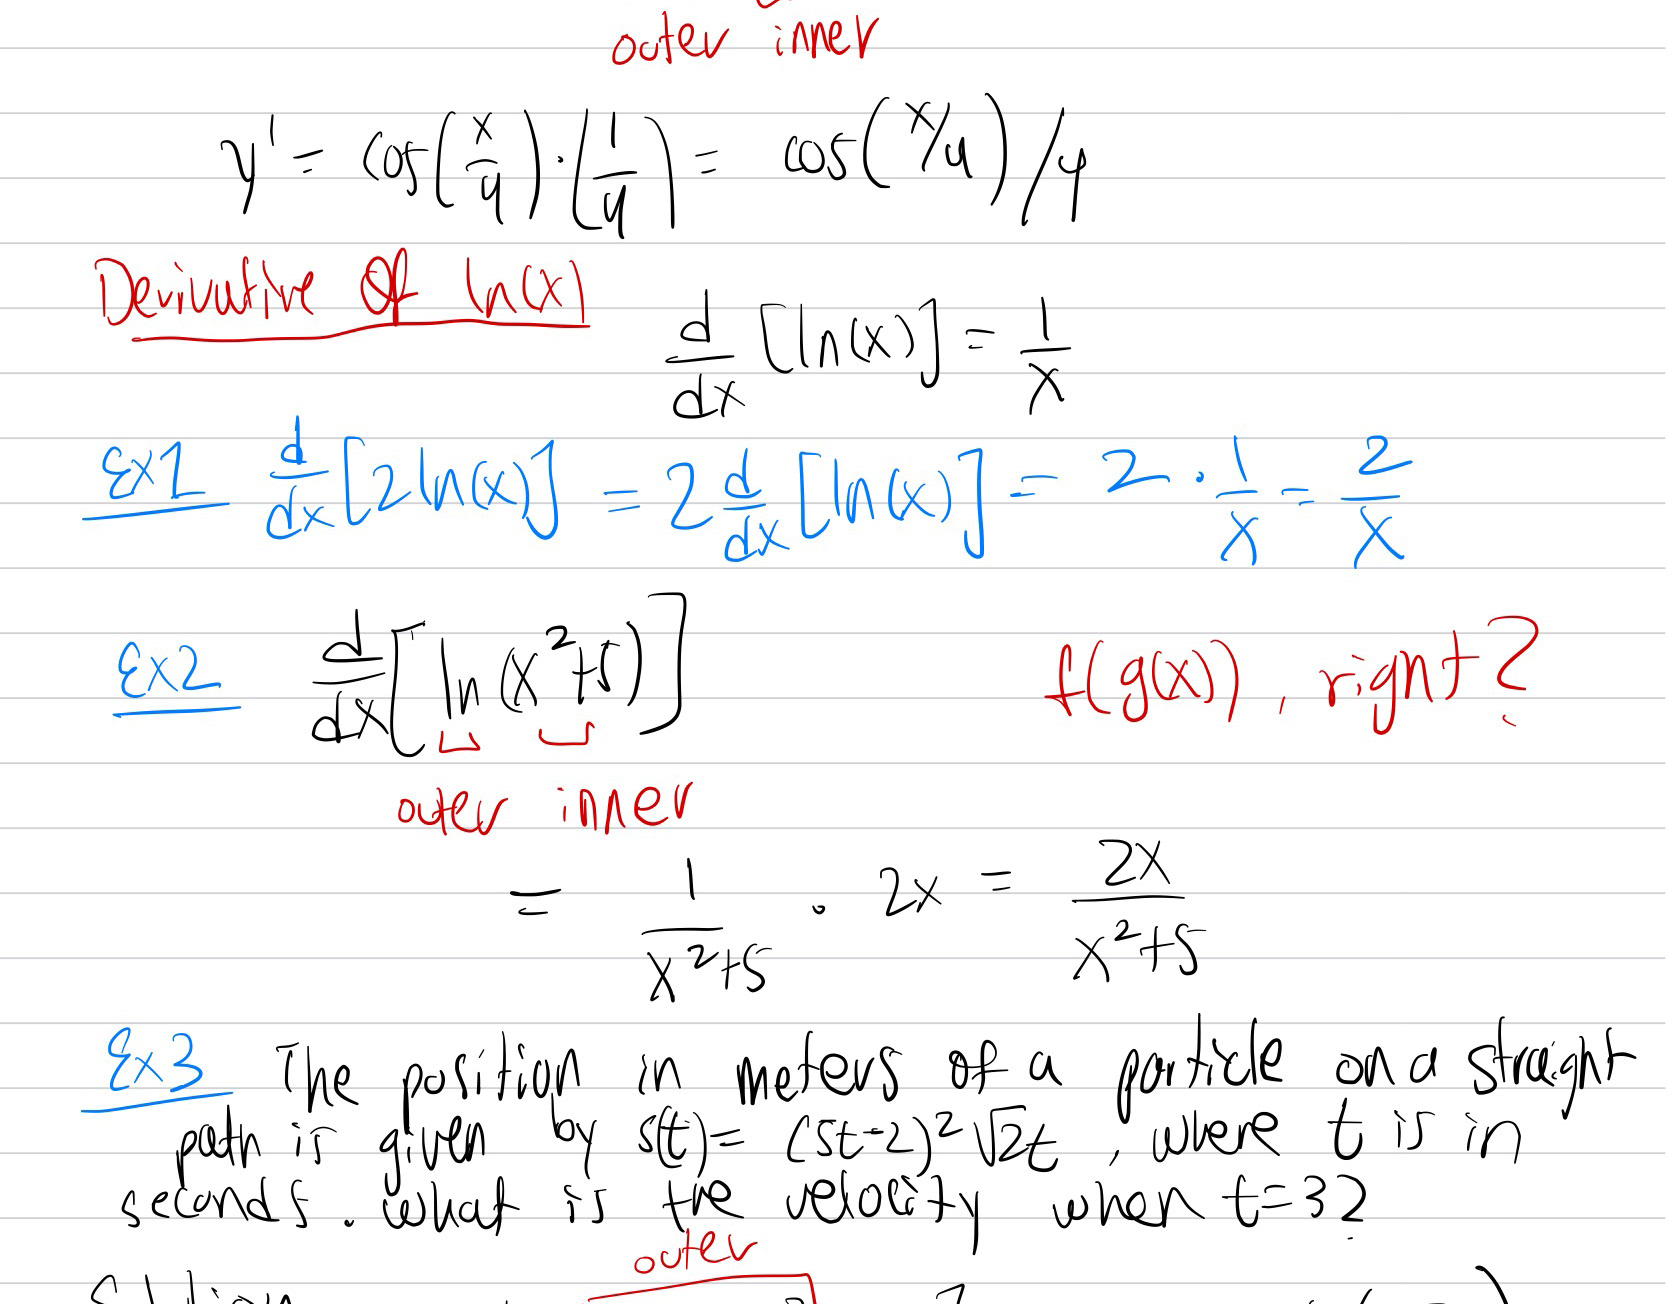 outer inner
y' = cos(x/4)·(1/4) = cos(x/4)/4
Derivative Of ln(x)
d/dx [ln(x)] = 1/x
Ex1 d/dx [2ln(x)] = 2 d/dx [ln(x)] = 2 · 1/x = 2/x
Ex2 d/dx [ln(x²+5)] f(g(x)), right?
outer inner
= 1/(x²+5) · 2x = 2x/(x²+5)
Ex3 The position in meters of a particle on a straight
path is given by s(t) = (5t-2)²√2t, where t is in
seconds. what is the velocity when t=3?
outer